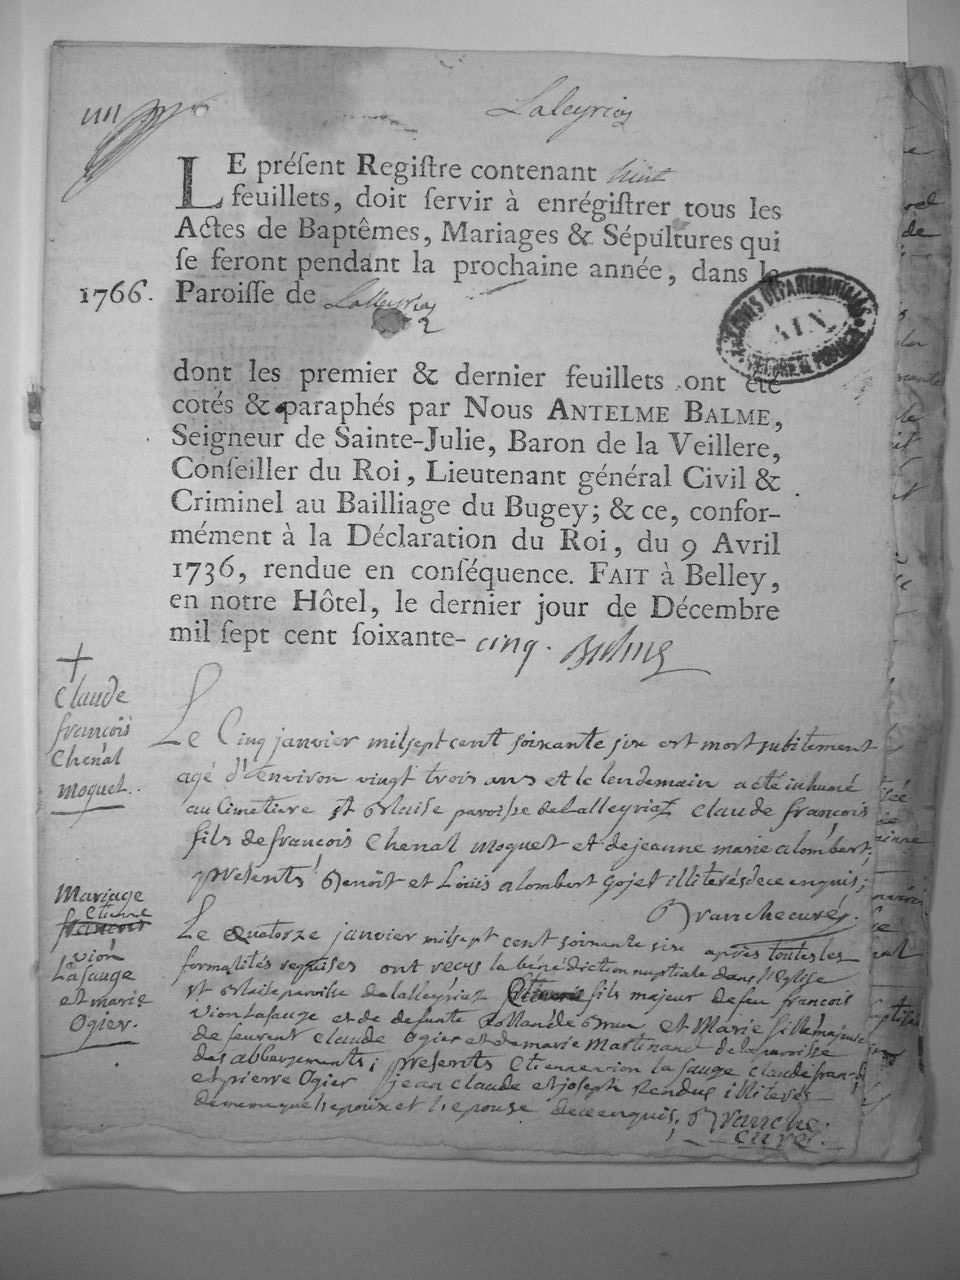 Laleyriaz
LE préſent Regiſtre contenant huit
feuillets, doit ſervir à enrégiſtrer tous les
Actes de Baptêmes, Mariages & Sépultures qui
ſe feront pendant la prochaine année, dans la
1766. Paroiſſe de Lalleyriaz
ARCHIVES DÉPARTEMENTALES
AIN
dont les premier & dernier feuillets ont été
cotés & paraphés par Nous ANTELME BALME,
Seigneur de Sainte-Julie, Baron de la Veillere,
Conſeiller du Roi, Lieutenant général Civil &
Criminel au Bailliage du Bugey; & ce, confor-
mément à la Déclaration du Roi, du 9 Avril
1736, rendue en conſéquence. FAIT à Belley,
en notre Hôtel, le dernier jour de Décembre
mil ſept cent ſoixante- cinq. Balme
Claude
françois
Chenal
moquet.
Le Cinq janvier milsept cent soixante six est mort subitement
agé d'environ vingt trois ans et le lendemain a eté inhumé
au Cimetiere st Blaise paroisse de Lalleyriaz Claude françois
fils de françois Chenal moquet et de jeanne marie alombert,
presents Benoît et Loüis alombert gojet illiterés de ce enquis;
Branche curé.
Mariage
Etienne
françois
vion
Lasauge
et marie
Ogier.
Le Quatorze janvier milsept cent soixante six après toutes les
formalités requises ont reçus la bénédiction nuptiale dans l'Eglise
st Blaise paroisse de Lalleyriaz Etienne fils majeur de feu françois
vion Lasauge et de defunte Rollande Brun et Marie fille majeure
de feu rent Claude Ogier et de marie Martinand de la paroisse
des abbergements; presents Etienne vion la sauge Claude fran-s
et pierre Ogier jean claude et joseph Rendus illiterés
de meme que l'epoux et l'epouse de ce enquis, Branche
curé.